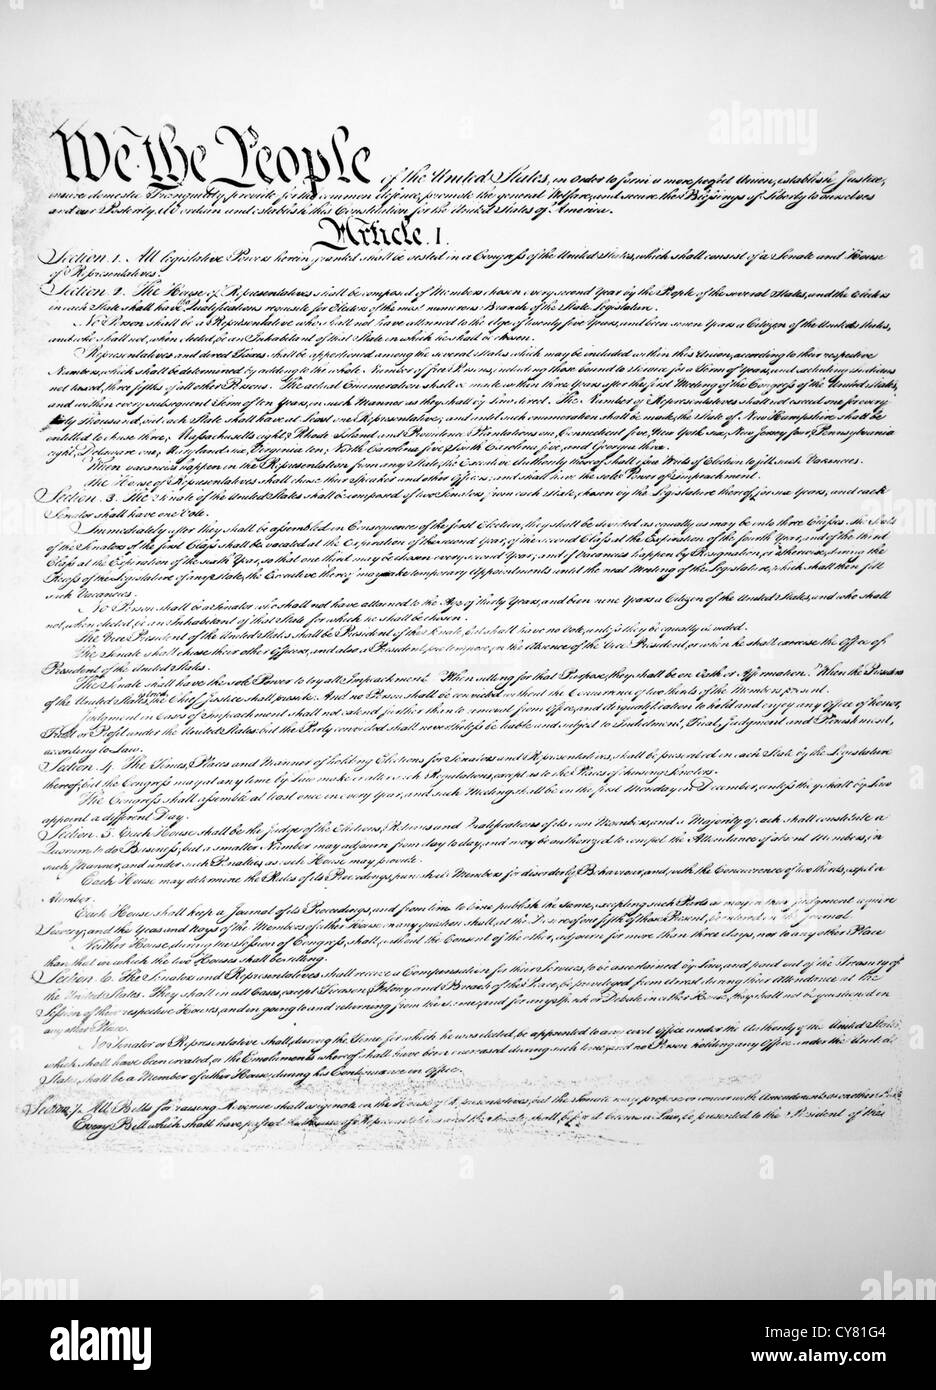 We the People of the United States, in Order to form a more perfect Union, establish Justice,
insure domestic Tranquility, provide for the common defence, promote the general Welfare, and secure the Blessings of Liberty to ourselves
and our Posterity, do ordain and establish this Constitution for the United States of America.
Article. I.
Section. 1. All legislative Powers herein granted shall be vested in a Congress of the United States, which shall consist of a Senate and House
of Representatives.
Section. 2. The House of Representatives shall be composed of Members chosen every second Year by the People of the several States, and the Electors
in each State shall have the Qualifications requisite for Electors of the most numerous Branch of the State Legislature.
No Person shall be a Representative who shall not have attained to the Age of twenty five Years, and been seven Years a Citizen of the United States,
and who shall not, when elected, be an Inhabitant of that State in which he shall be chosen.
Representatives and direct Taxes shall be apportioned among the several States which may be included within this Union, according to their respective
Numbers, which shall be determined by adding to the whole Number of free Persons, including those bound to Service for a Term of Years, and excluding Indians
not taxed, three fifths of all other Persons. The actual Enumeration shall be made within three Years after the first Meeting of the Congress of the United States,
and within every subsequent Term of ten Years, in such Manner as they shall by Law direct. The Number of Representatives shall not exceed one for every
thirty Thousand, but each State shall have at Least one Representative; and until such enumeration shall be made, the State of New Hampshire shall be
entitled to chuse three, Massachusetts eight, Rhode Island and Providence Plantations one, Connecticut five, New York six, New Jersey four, Pennsylvania
eight, Delaware one, Maryland six, Virginia ten, North Carolina five, South Carolina five, and Georgia three.
When vacancies happen in the Representation from any State, the Executive Authority thereof shall issue Writs of Election to fill such Vacancies.
The House of Representatives shall chuse their Speaker and other Officers; and shall have the sole Power of Impeachment.
Section. 3. The Senate of the United States shall be composed of two Senators from each State, chosen by the Legislature thereof, for six Years; and each
Senator shall have one Vote.
Immediately after they shall be assembled in Consequence of the first Election, they shall be divided as equally as may be into three Classes. The Seats
of the Senators of the first Class shall be vacated at the Expiration of the second Year, of the second Class at the Expiration of the fourth Year, and of the third
Class at the Expiration of the sixth Year, so that one third may be chosen every second Year; and if Vacancies happen by Resignation, or otherwise, during the
Recess of the Legislature of any State, the Executive thereof may make temporary Appointments until the next Meeting of the Legislature, which shall then fill
such Vacancies.
No Person shall be a Senator who shall not have attained to the Age of thirty Years, and been nine Years a Citizen of the United States, and who shall
not, when elected, be an Inhabitant of that State for which he shall be chosen.
The Vice President of the United States shall be President of the Senate, but shall have no Vote, unless they be equally divided.
The Senate shall chuse their other Officers, and also a President pro tempore, in the Absence of the Vice President, or when he shall exercise the Office of
President of the United States.
The Senate shall have the sole Power to try all Impeachments. When sitting for that Purpose, they shall be on Oath or Affirmation. When the President
of the United States is tried, the Chief Justice shall preside: And no Person shall be convicted without the Concurrence of two thirds of the Members present.
Judgment in Cases of Impeachment shall not extend further than to removal from Office, and disqualification to hold and enjoy any Office of honor,
Trust or Profit under the United States: but the Party convicted shall nevertheless be liable and subject to Indictment, Trial, Judgment and Punishment,
according to Law.
Section. 4. The Times, Places and Manner of holding Elections for Senators and Representatives, shall be prescribed in each State by the Legislature
thereof; but the Congress may at any time by Law make or alter such Regulations, except as to the Places of chusing Senators.
The Congress shall assemble at least once in every Year, and such Meeting shall be on the first Monday in December, unless they shall by Law
appoint a different Day.
Section. 5. Each House shall be the Judge of the Elections, Returns and Qualifications of its own Members, and a Majority of each shall constitute a
Quorum to do Business; but a smaller Number may adjourn from day to day, and may be authorized to compel the Attendance of absent Members, in
such Manner, and under such Penalties as each House may provide.
Each House may determine the Rules of its Proceedings, punish its Members for disorderly Behaviour, and, with the Concurrence of two thirds, expel a
Member.
Each House shall keep a Journal of its Proceedings, and from time to time publish the same, excepting such Parts as may in their Judgment require
Secrecy; and the Yeas and Nays of the Members of either House on any question shall, at the Desire of one fifth of those Present, be entered on the Journal.
Neither House, during the Session of Congress, shall, without the Consent of the other, adjourn for more than three days, nor to any other Place
than that in which the two Houses shall be sitting.
Section. 6. The Senators and Representatives shall receive a Compensation for their Services, to be ascertained by Law, and paid out of the Treasury of
the United States. They shall in all Cases, except Treason, Felony and Breach of the Peace, be privileged from Arrest during their Attendance at the
Session of their respective Houses, and in going to and returning from the same; and for any Speech or Debate in either House, they shall not be questioned in
any other Place.
No Senator or Representative shall, during the Time for which he was elected, be appointed to any civil Office under the Authority of the United States,
which shall have been created, or the Emoluments whereof shall have been encreased during such time; and no Person holding any Office under the United
States, shall be a Member of either House during his Continuance in Office.
Section. 7. All Bills for raising Revenue shall originate in the House of Representatives; but the Senate may propose or concur with Amendments as on other Bills.
Every Bill which shall have passed the House of Representatives and the Senate, shall, before it become a Law, be presented to the President of the
alamy
Image ID: CY81G4
www.alamy.com